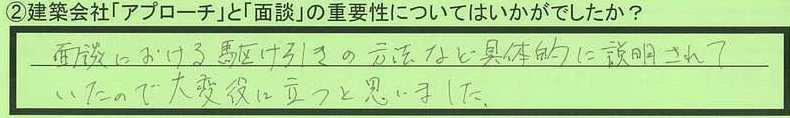 ②建築会社「アプローチ」と「面談」の重要性についてはいかがでしたか？
面談における駆け引きの方法など具体的に説明されて
いたので大変役に立つと思いました。